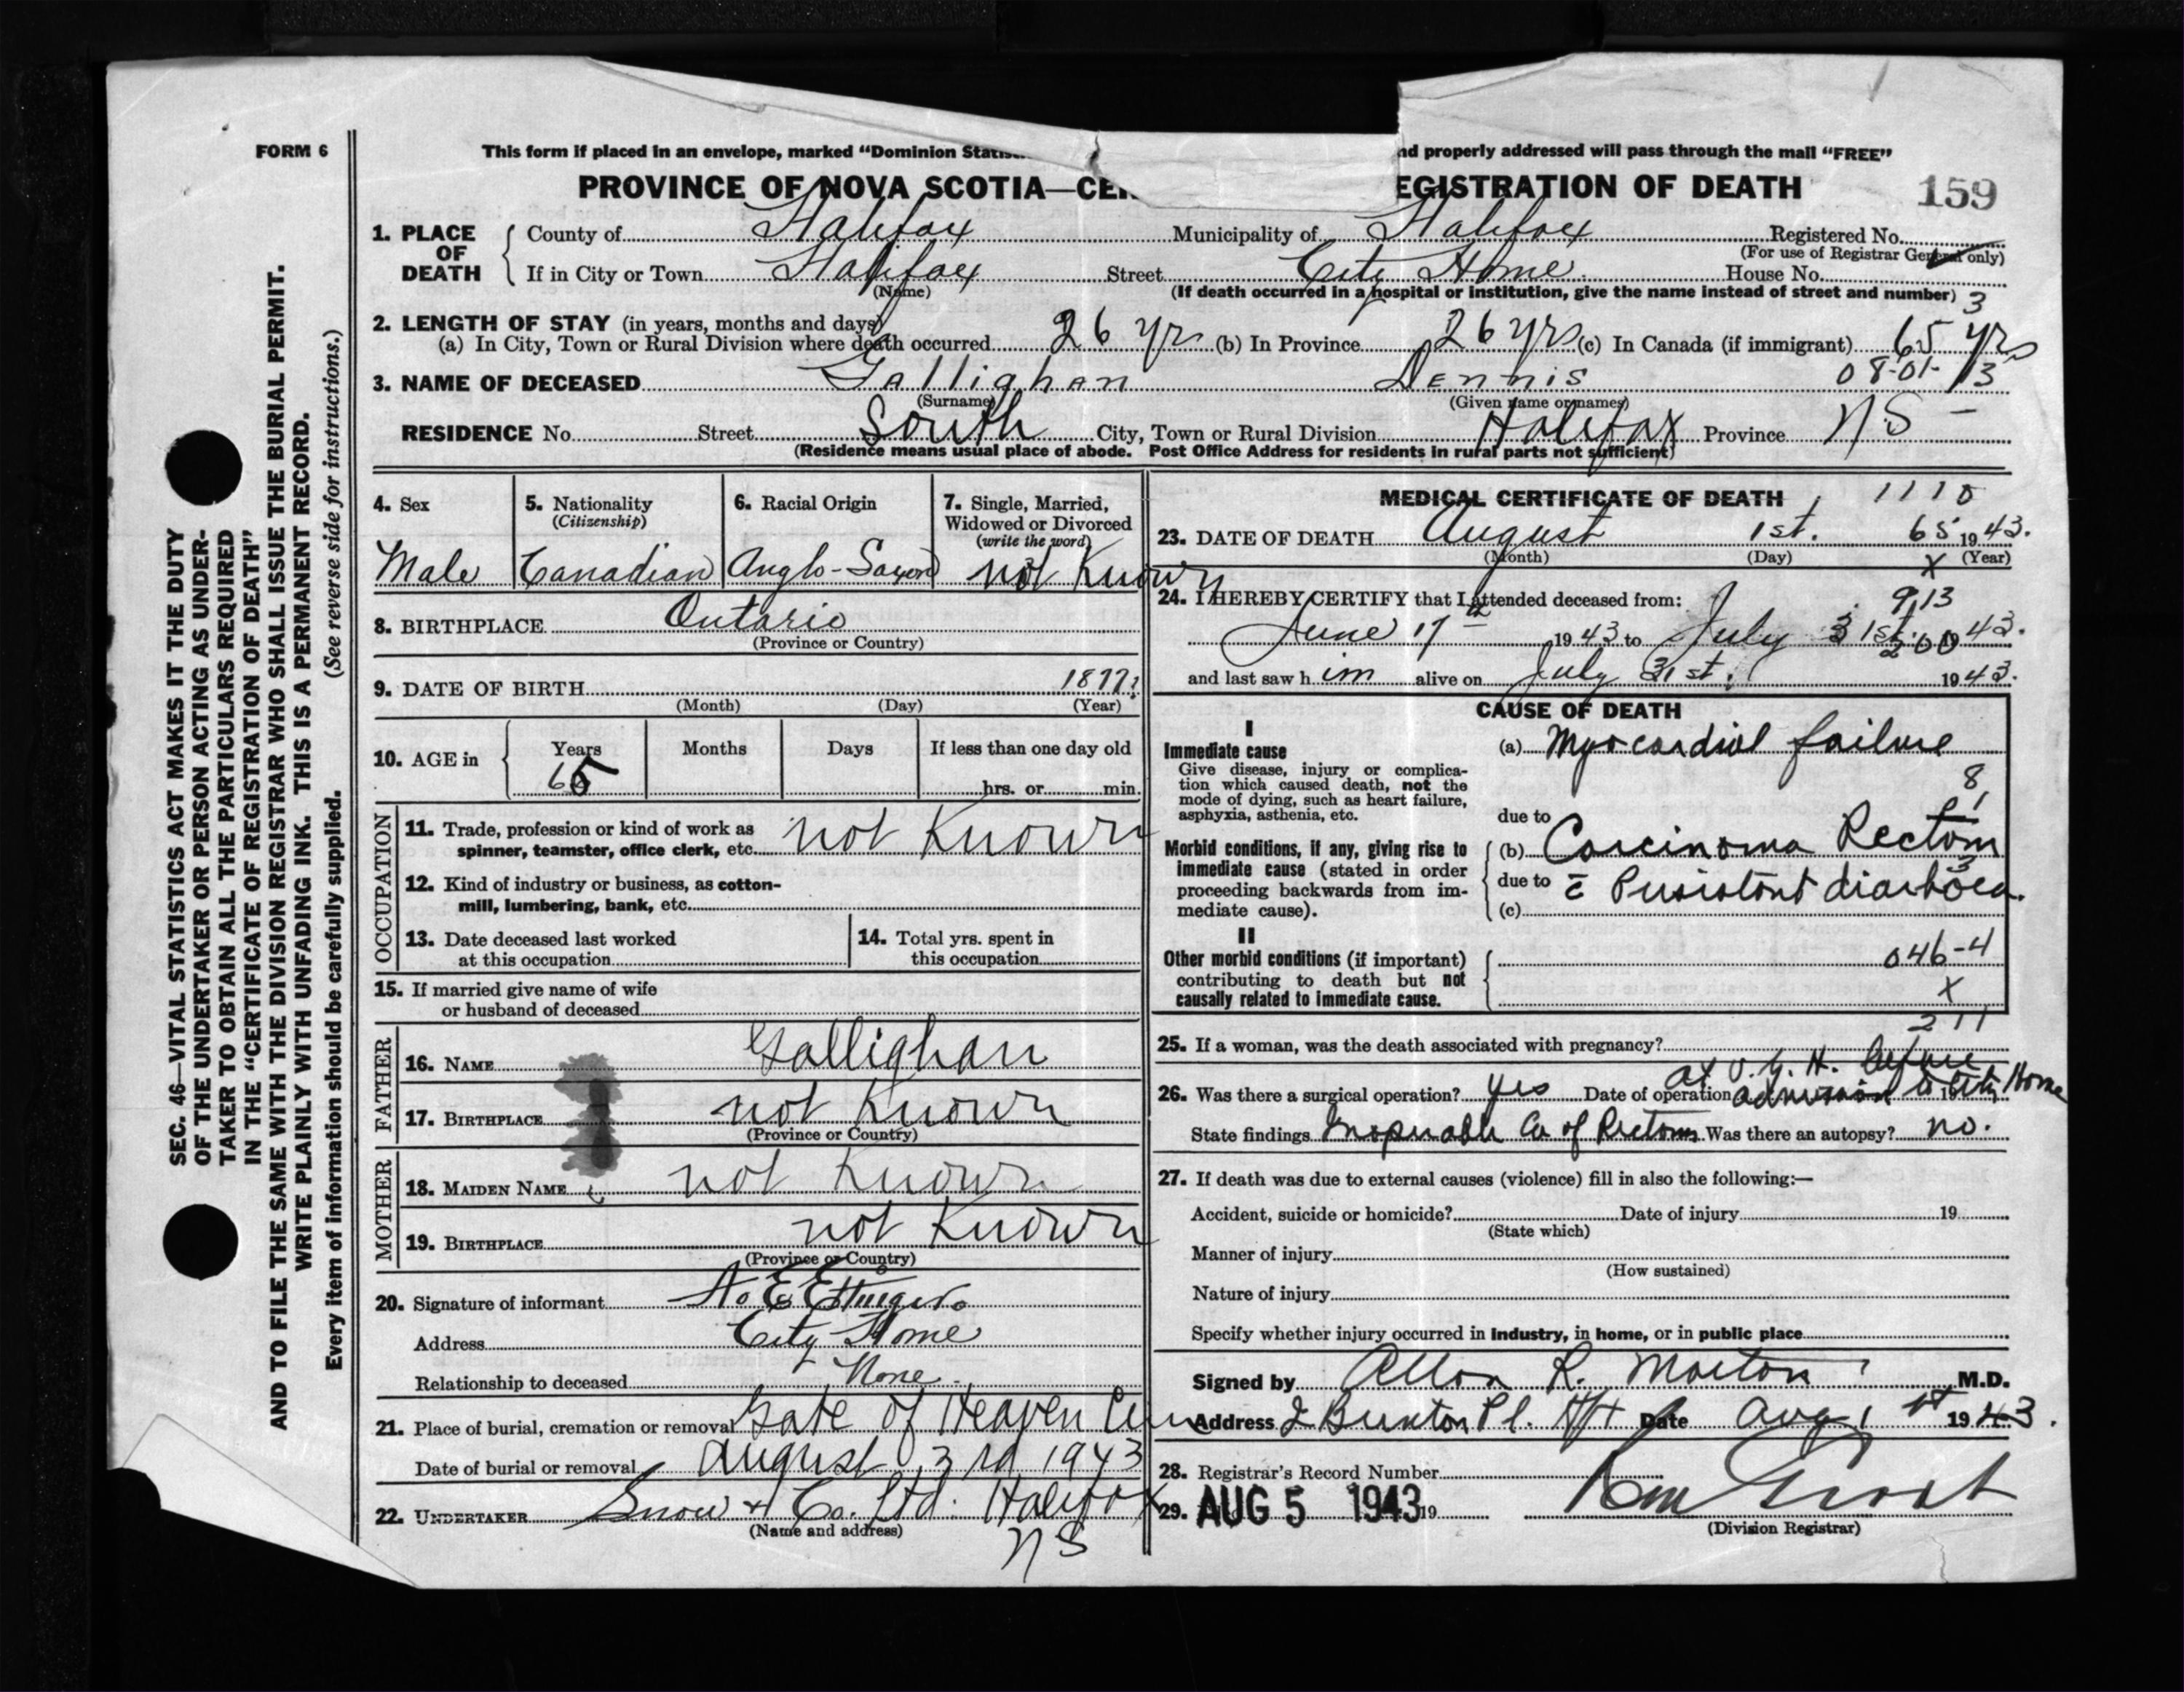 FORM 6
This form if placed in an envelope, marked "Dominion nd properly addressed will pass through the mail "FREE"
PROVINCE OF NOVA SCOTIA— EGISTRATION OF DEATH 159
1. PLACE OF DEATH County of Halifax Municipality of Halifax Registered No.
(For use of Registrar General only)
If in City or Town Halifax Street City Home House No.
(Name) (If death occurred in a hospital or institution, give the name instead of street and number)
3
2. LENGTH OF STAY (in years, months and days)
(a) In City, Town or Rural Division where death occurred 26 yrs (b) In Province 26 yrs (c) In Canada (if immigrant) 65 yrs
3. NAME OF DECEASED Gallighan Dennis 08-01-13
(Surname) (Given name or names)
RESIDENCE No. Street South City, Town or Rural Division Halifax Province N.S -
(Residence means usual place of abode. Post Office Address for residents in rural parts not sufficient)
4. Sex
Male
5. Nationality
(Citizenship)
Canadian
6. Racial Origin
Anglo-Saxon
7. Single, Married,
Widowed or Divorced
(write the word)
not Known
8. BIRTHPLACE Ontario
(Province or Country)
9. DATE OF BIRTH
(Month) (Day) (Year)
10. AGE in Years Months Days If less than one day old
65 hrs. or min.
OCCUPATION
11. Trade, profession or kind of work as
spinner, teamster, office clerk, etc. not Known
12. Kind of industry or business, as cotton-
mill, lumbering, bank, etc.
13. Date deceased last worked
at this occupation
14. Total yrs. spent in
this occupation
15. If married give name of wife
or husband of deceased
FATHER
16. NAME Gallighan
17. BIRTHPLACE not Known
(Province or Country)
MOTHER
18. MAIDEN NAME not Known
19. BIRTHPLACE not Known
(Province or Country)
20. Signature of informant
Address City Home
Relationship to deceased None
21. Place of burial, cremation or removal Gate of Heaven Cem
Date of burial or removal August 3rd 1943
22. UNDERTAKER Snow & Co. Ltd. Halifax
(Name and address)
NS
MEDICAL CERTIFICATE OF DEATH 1110
23. DATE OF DEATH August 1st. 65 1943.
(Month) (Day) (Year)
X
24. I HEREBY CERTIFY that I attended deceased from: 913
June 17th 1943 to July 31st. 200 1943.
and last saw him alive on July 31st. 1943.
CAUSE OF DEATH
I
Immediate cause
Give disease, injury or complica-
tion which caused death, not the
mode of dying, such as heart failure,
asphyxia, asthenia, etc.
(a) Myocardial failure
8
1
due to
Morbid conditions, if any, giving rise to
immediate cause (stated in order
proceeding backwards from im-
mediate cause).
(b) Carcinoma Rectom
3
due to c̄ Persistont diarhoea.
(c)
II
Other morbid conditions (if important)
contributing to death but not
causally related to immediate cause.
046-4
X
211
25. If a woman, was the death associated with pregnancy?
26. Was there a surgical operation? yes Date of operation at V.G.H. before admission to City Home 19
State findings Inoperable Ca of Rectom Was there an autopsy? no.
27. If death was due to external causes (violence) fill in also the following:—
Accident, suicide or homicide? Date of injury 19
(State which)
Manner of injury
(How sustained)
Nature of injury
Specify whether injury occurred in industry, in home, or in public place
Signed by Allon R. Morton M.D.
Address 2 Brunton Pl. Hfx Date Aug 1st 1943.
28. Registrar's Record Number
29. AUG 5 1943 19
(Division Registrar)
SEC. 46—VITAL STATISTICS ACT MAKES IT THE DUTY
OF THE UNDERTAKER OR PERSON ACTING AS UNDER-
TAKER TO OBTAIN ALL THE PARTICULARS REQUIRED
IN THE "CERTIFICATE OF REGISTRATION OF DEATH"
AND TO FILE THE SAME WITH THE DIVISION REGISTRAR WHO SHALL ISSUE THE BURIAL PERMIT.
WRITE PLAINLY WITH UNFADING INK. THIS IS A PERMANENT RECORD.
Every item of information should be carefully supplied. (See reverse side for instructions.)